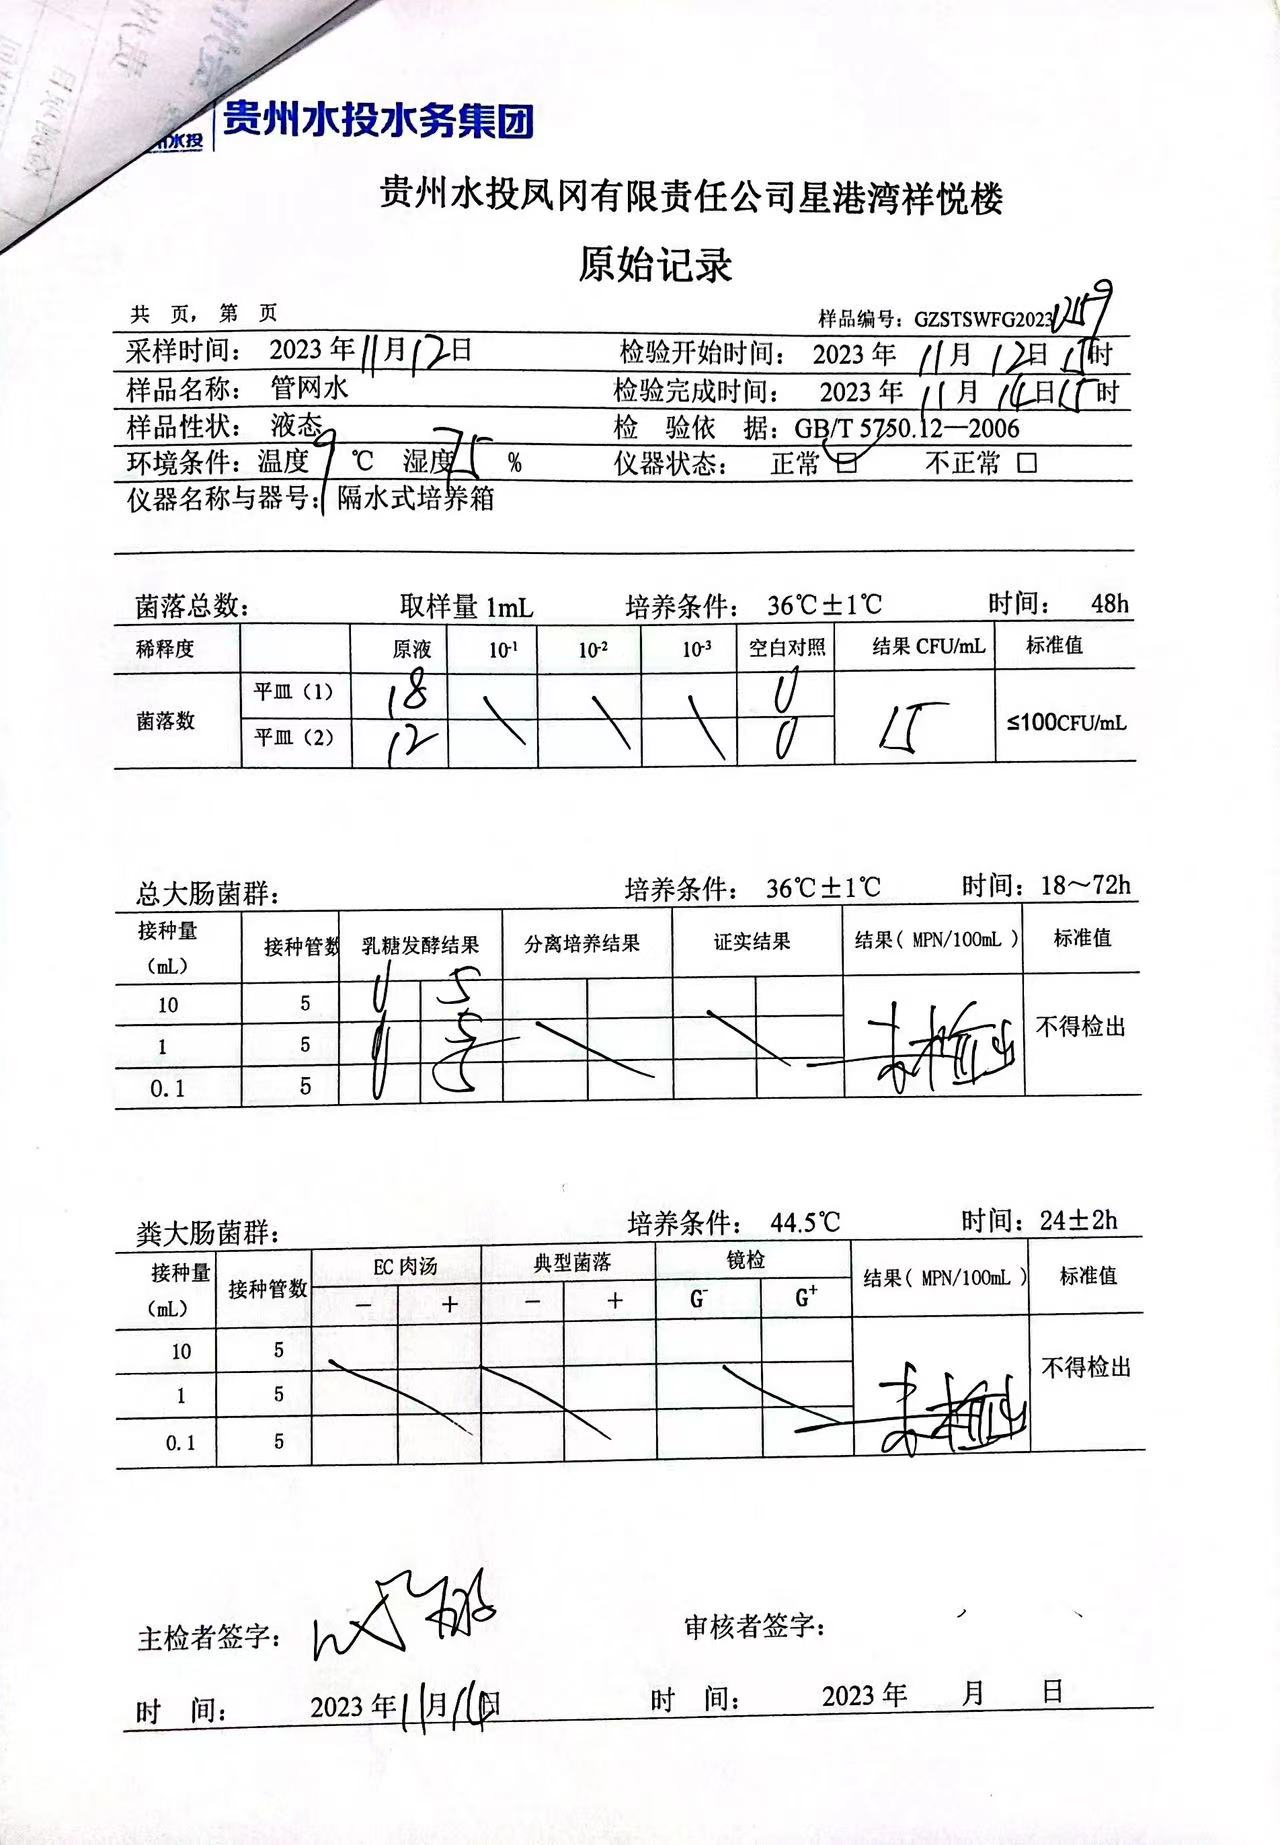 水投 贵州水投水务集团
贵州水投凤冈有限责任公司星港湾祥悦楼
原始记录
共 页, 第 页 样品编号: GZSTSWFG2023
采样时间: 2023年11月12日 检验开始时间: 2023年 11月 12日 15时
样品名称: 管网水 检验完成时间: 2023年 11月 14日15时
样品性状: 液态 检 验依 据: GB/T 5750.12—2006
环境条件: 温度9℃ 湿度75% 仪器状态: 正常 ☑ 不正常 □
仪器名称与器号: 隔水式培养箱
菌落总数: 取样量 1mL 培养条件: 36℃±1℃ 时间: 48h
稀释度 原液 10-1 10-2 10-3 空白对照 结果 CFU/mL 标准值
菌落数 平皿(1) 18 \ \ \ 0 15 ≤100CFU/mL
平皿(2) 12 0
总大肠菌群: 培养条件: 36℃±1℃ 时间: 18～72h
接种量(mL) 接种管数 乳糖发酵结果 分离培养结果 证实结果 结果( MPN/100mL ) 标准值
10 5 0 5 未检出 不得检出
1 5 0 5
0.1 5 0 5
粪大肠菌群: 培养条件: 44.5℃ 时间: 24±2h
接种量(mL) 接种管数 EC肉汤 典型菌落 镜检 结果( MPN/100mL ) 标准值
— + — + G- G+
10 5 未检出 不得检出
1 5
0.1 5
主检者签字: 审核者签字:
时 间: 2023年11月14日 时 间: 2023年 月 日